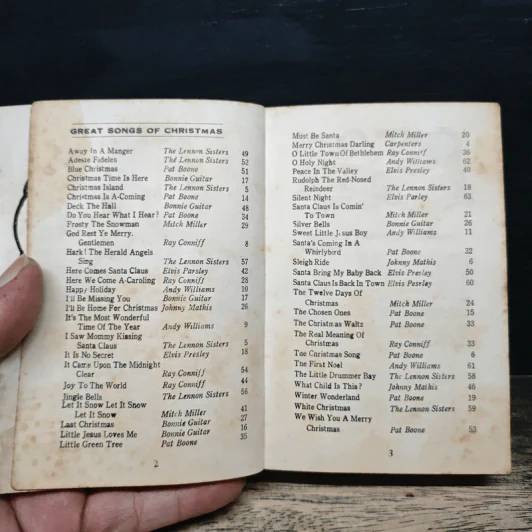 GREAT SONGS OF CHRISTMAS
Away In A Manger The Lennon Sisters 49
Adeste Fideles The Lennon Sisters 52
Blue Christmas Pat Boone 51
Christmas Time Is Here Bonnie Guitar 17
Christmas Island The Lennon Sisters 5
Christmas Is A-Coming Pat Boone 14
Deck The Hall Bonnie Guitar 48
Do You Hear What I Hear? Pat Boone 34
Frosty The Snowman Mitch Miller 29
God Rest Ye Merry.
Gentlemen Ray Conniff 8
Hark! The Herald Angels
Sing The Lennon Sisters 57
Here Comes Santa Claus Elvis Parsley 42
Here We Come A-Caroling Ray Conniff 28
Happy Holiday Andy Williams 10
I'll Be Missing You Bonnie Guitar 17
I'll Be Home For Christmas Johnny Mathis 26
It's The Most Wonderful
Time Of The Year Andy Williams 9
I Saw Mommy Kissing
Santa Claus The Lennon Sisters 5
It Is No Secret Elvis Presley 18
It Came Upon The Midnight
Clear Ray Conniff 54
Joy To The World Ray Conniff 44
Jingle Bells The Lennon Sisters 56
Let It Snow Let It Snow
Let It Snow Mitch Miller 41
Last Christmas Bonnie Guitar 27
Little Jesus Loves Me Bonnie Guitar 16
Little Green Tree Pat Boone 35
2
Must Be Santa Mitch Miller 20
Merry Christmas Darling Carpenters 4
O Little Town Of Bethlehem Ray Conniff 36
O Holy Night Andy Williams 62
Peace In The Valley Elvis Presley 40
Rudolph The Red-Nosed
Reindeer The Lennon Sisters 18
Silent Night Elvis Parley 63
Santa Claus Is Comin'
To Town Mitch Miller 21
Silver Bells Bonnie Guitar 26
Sweet Little Jesus Boy Andy Williams 11
Santa's Coming In A
Whirlybrd Pat Boone 32
Sleigh Ride Johnny Mathis 6
Santa Bring My Baby Back Elvis Presley 50
Santa Claus Is Back In Town Elvis Presley 60
The Twelve Days Of
Christmas Mitch Miller 24
The Chosen Ones Pat Boone 15
The Christmas Waltz Pat Boone 33
The Real Meaning Of
Christmas Ray Conniff 33
The Christmas Song Pat Boone 6
The First Noel Andy Williams 61
The Little Drummer Bay The Lennon Sisters 58
What Child Is This? Johnny Mathis 46
Winter Wonderland Pat Boone 19
White Christmas The Lennon Sisters 59
We Wish You A Merry
Christmas Pat Boone 53
3